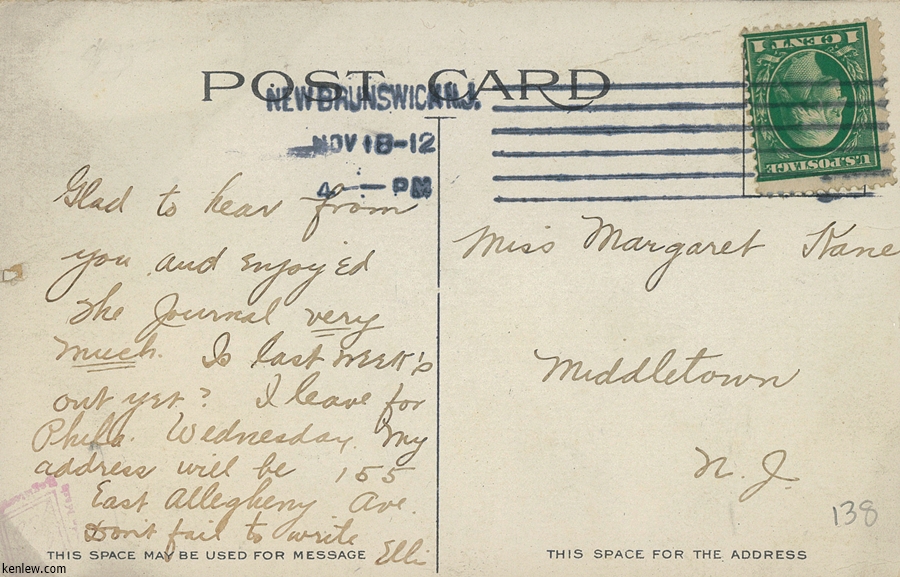 POST CARD
NEW BRUNSWICK N.J.
NOV 18-12
4 — PM
1 CENT 1
U.S. POSTAGE
Glad to hear from
you and enjoyed
the Journal very
much. Is last week's
out yet? I leave for
Phila. Wednesday. My
address will be 155
East Allegheny Ave.
Don't fail to write
Elli
Miss Margaret Kane
Middletown
N. J.
138
THIS SPACE MAY BE USED FOR MESSAGE
THIS SPACE FOR THE ADDRESS
kenlew.com